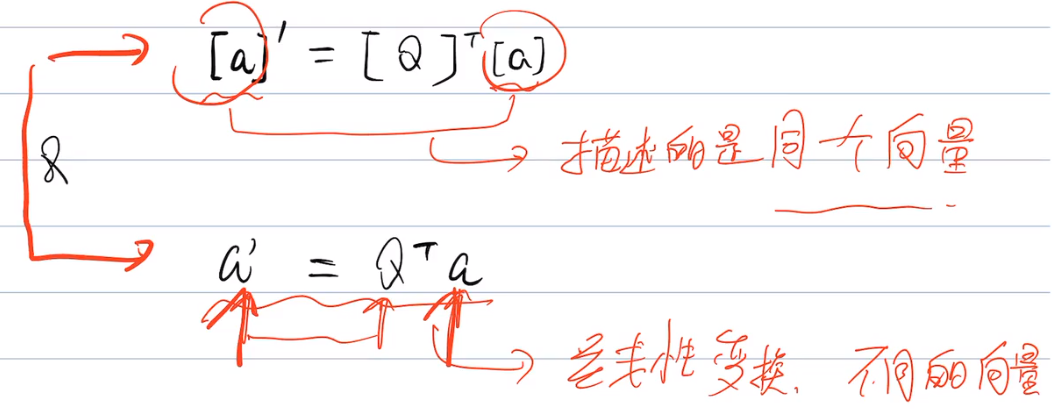 [a]' = [Q]ᵀ[a]
描述的是同一个向量
Q
a' = Qᵀ a
是线性变换. 不同的向量